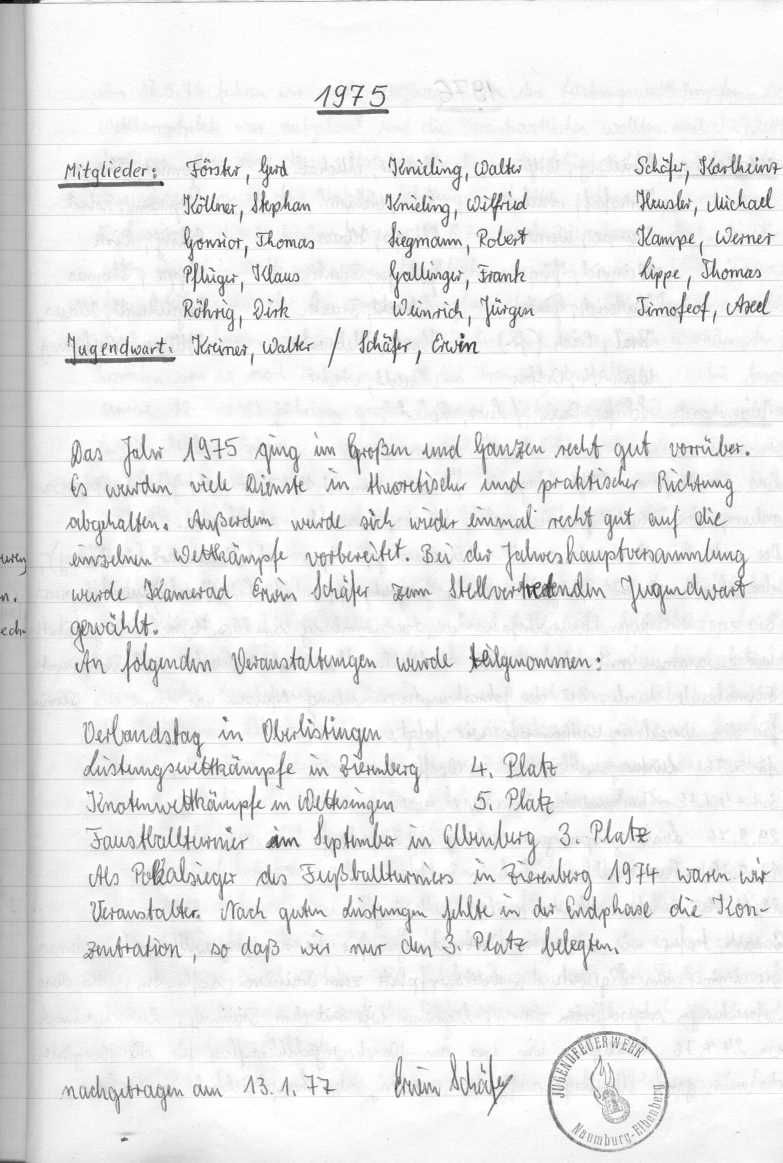 1975
Mitglieder: Förster, Gerd Knieling, Walter Schäfer, Karlheinz
Köllner, Stephan Knieling, Wilfried Heusler, Michael
Gonsior, Thomas Siegmann, Robert Kampe, Werner
Pflüger, Klaus Gallinger, Frank Lippe, Thomas
Röhrig, Dirk Weinrich, Jürgen Timofeof, Axel
Jugendwart: Kreiner, Walter / Schäfer, Erwin
Das Jahr 1975 ging im Großen und Ganzen recht gut vorrüber.
Es wurden viele Dienste in theoretischer und praktischer Richtung
abgehalten. Außerdem wurde sich wieder einmal recht gut auf die
einzelnen Wettkämpfe vorbereitet. Bei der Jahreshauptversammlung
wurde Kamerad Erwin Schäfer zum Stellvertretenden Jugendwart
gewählt.
An folgenden Veranstaltungen wurde teilgenommen:
Verbandstag in Oberlistingen
Leistungswettkämpfe in Zierenberg 4. Platz
Knotenwettkämpfe in Wettesingen 5. Platz
Faustballturnier im September in Elbenberg 3. Platz
Als Pokalsieger des Fußballturniers in Zierenberg 1974 waren wir
Veranstalter. Nach guten Leistungen fehlte in der Endphase die Kon-
zentration, so daß wir nur den 3. Platz belegten.
nachgetragen am 13.1.77 Erwin Schäfer
JUGENDFEUERWEHR
Naumburg-Elbenberg